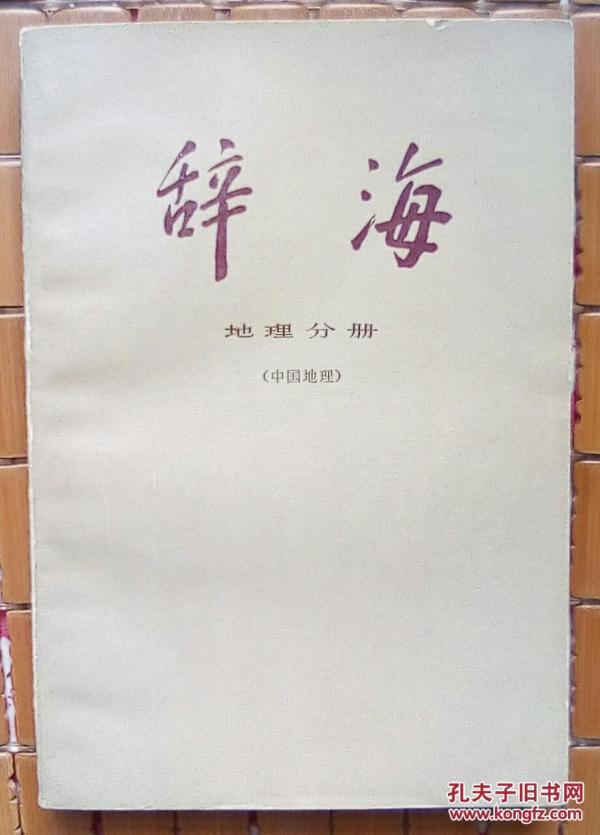 辞海
地理分册
（中国地理）
孔夫子旧书网
www.kongfz.com